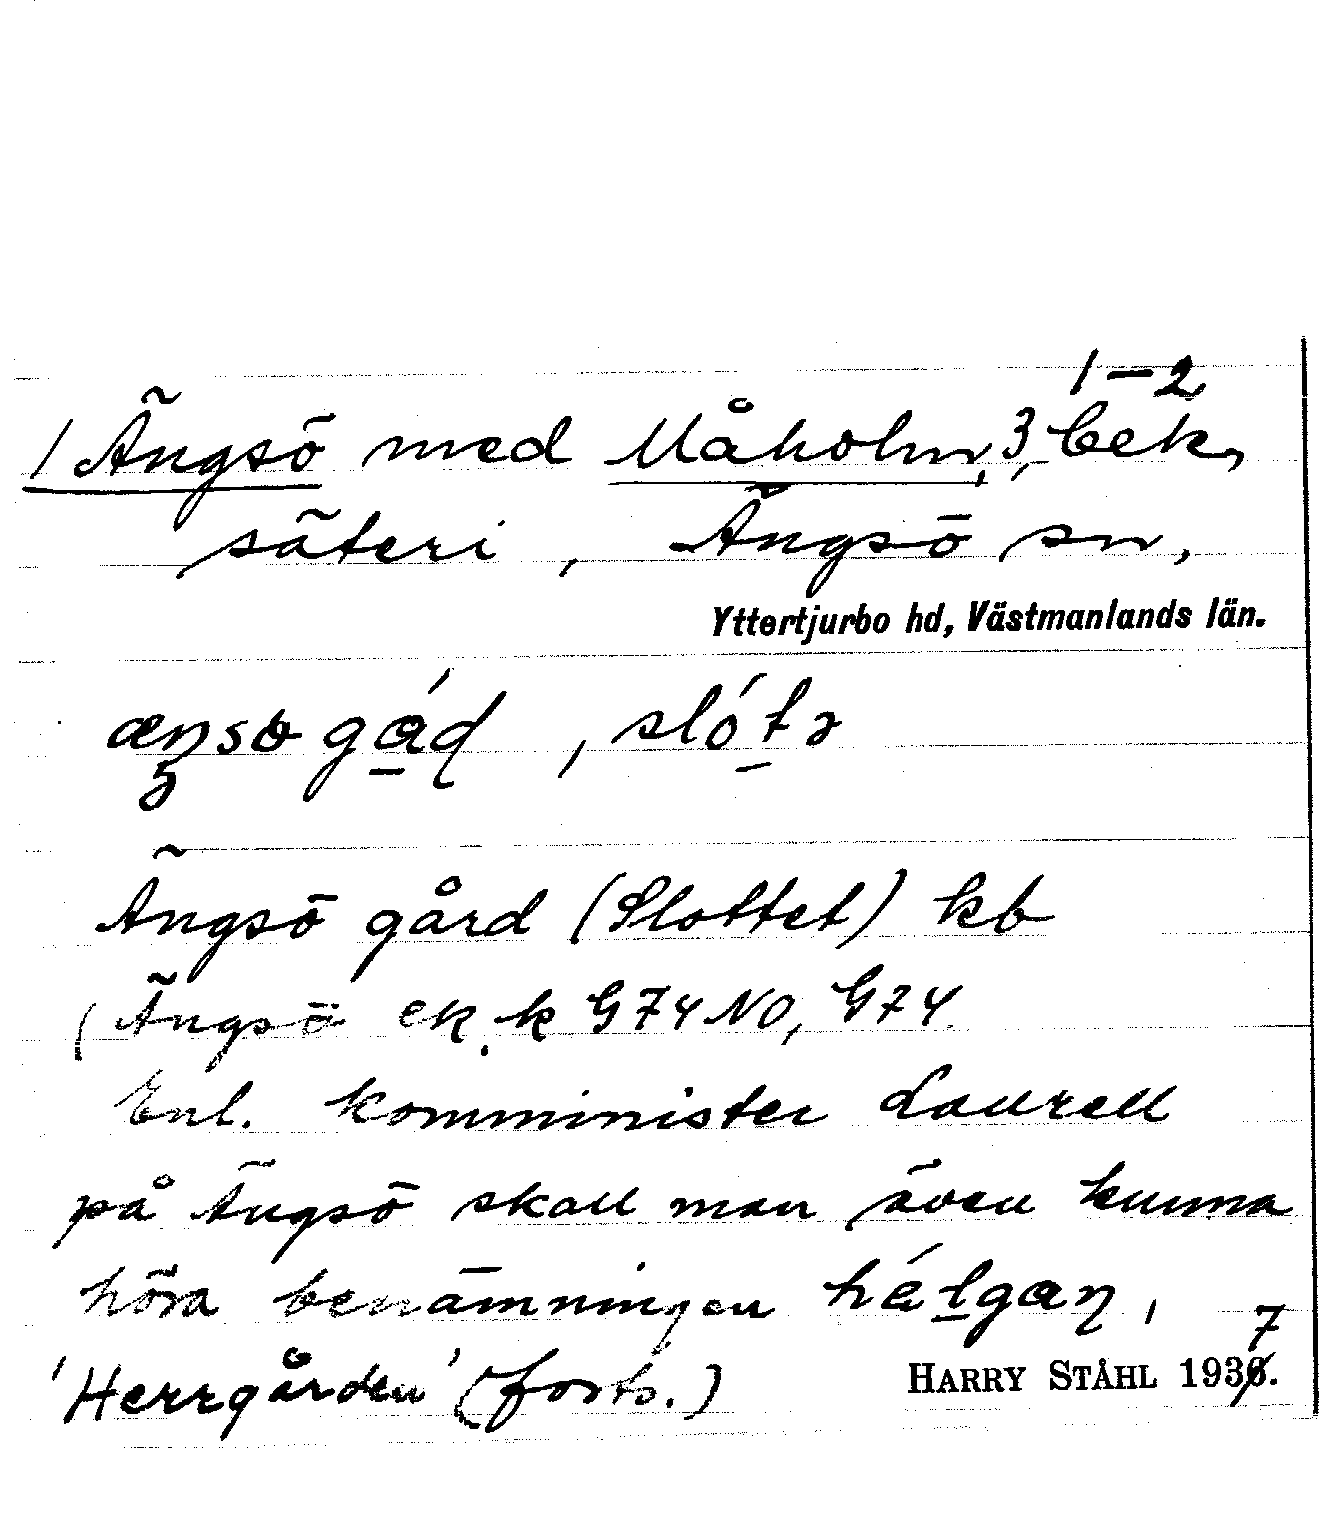 1–2
1 Ängsö med Måholm, 3, bek,
säteri, Ängsö sn,
Yttertjurbo hd, Västmanlands län.
Ängsö gård (Slottet) kb
(Ängsö ek. k G74NO, G74
Enl. komminister Laurell
på Ängsö skall man även kunna
höra benämningen
'Herrgården' (forts.)
7
HARRY STÅHL 1936.